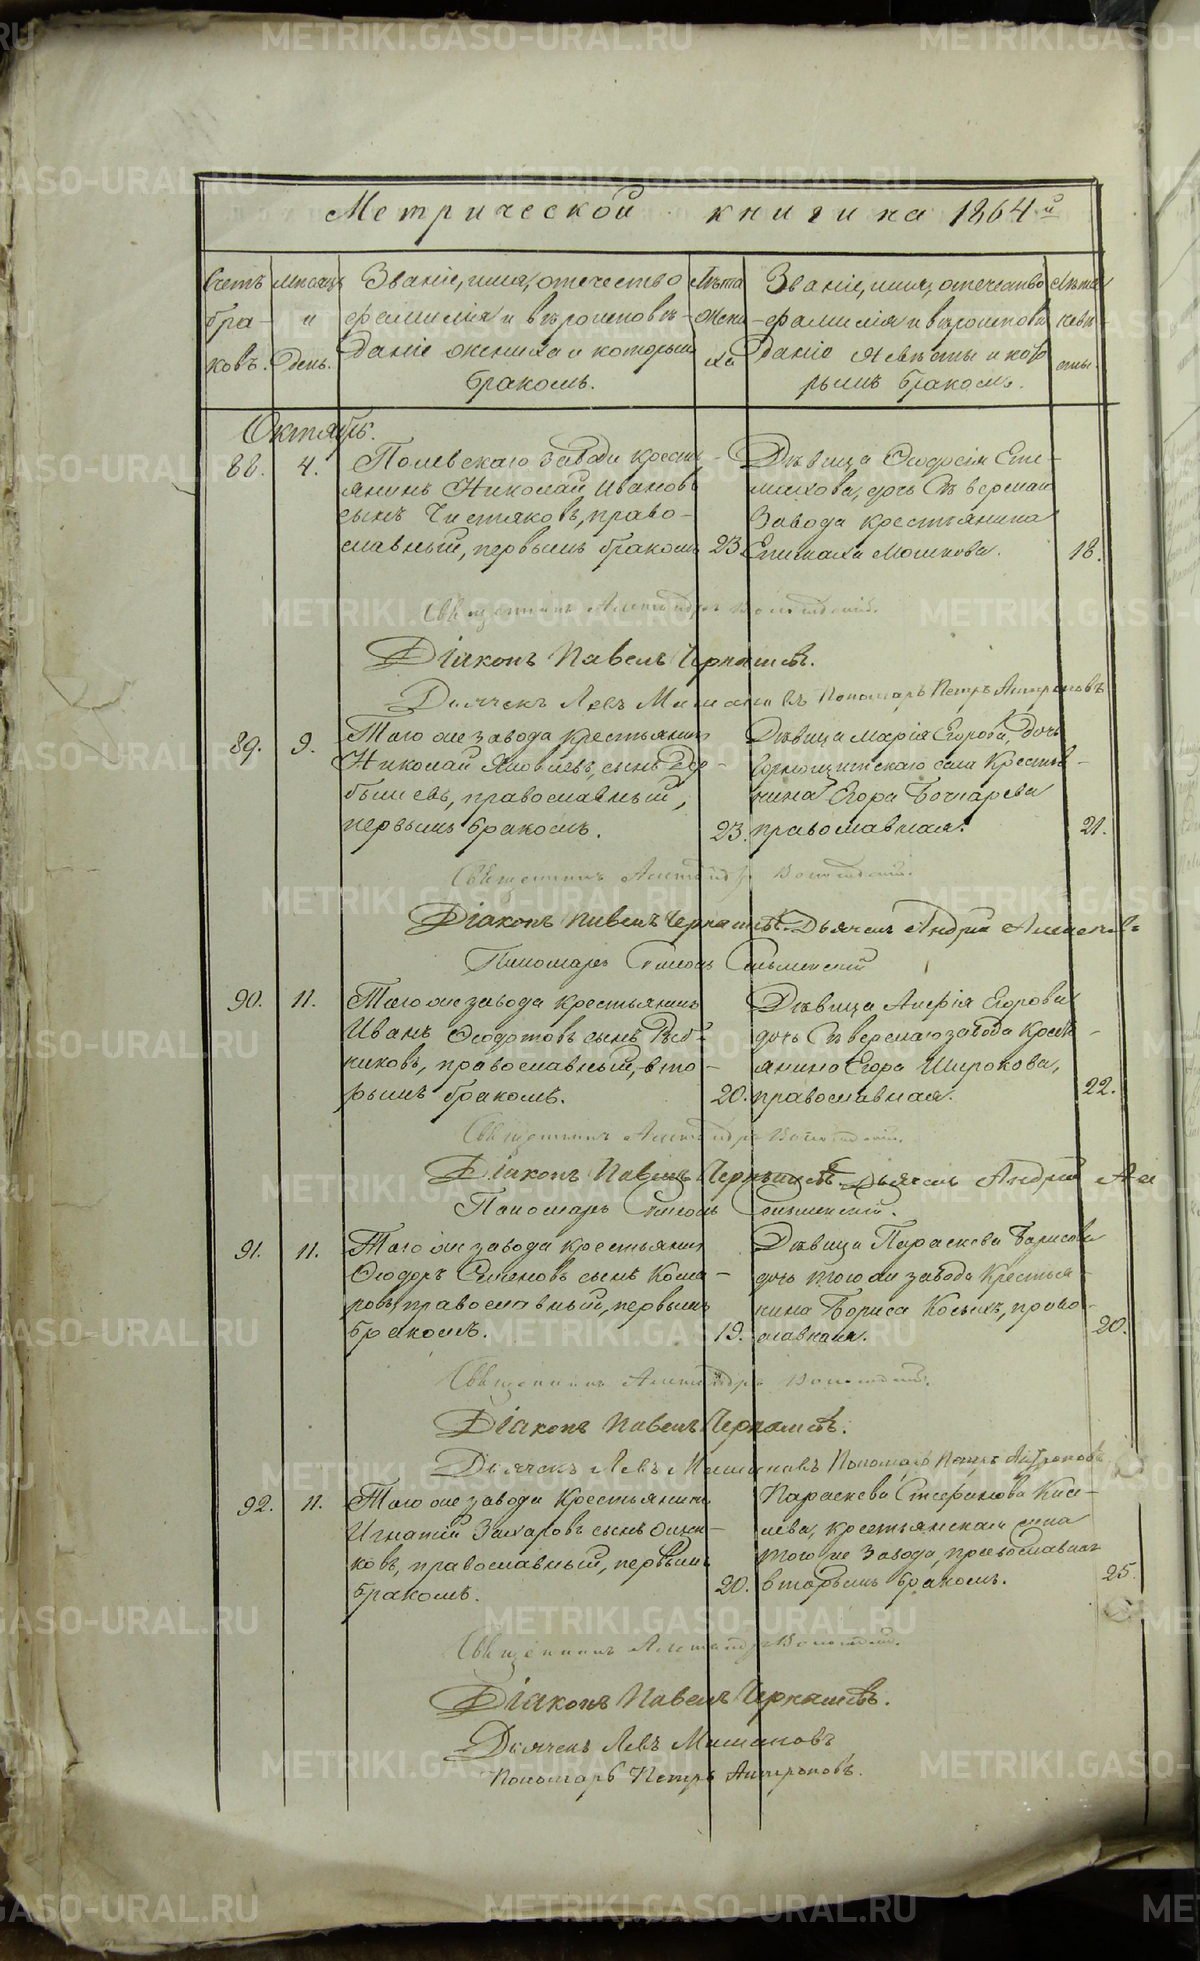 Метрической книги на 1864й
Счетъ браковъ.
Мѣсяцъ и день.
Званіе, имя, отчество
фамилія и вѣроисповѣ-
даніе жениха и которымъ
бракомъ.
Лѣта жениха
Званіе, имя, отчество
фамилія и вѣроиспов
даніе невѣсты и кото
рымъ бракомъ.
Лѣта невѣсты.
Октябрь.
88. 4.
Полевскаго завода кресть-
янинъ Николай Ивановъ
сынъ Чистяковъ, право-
славный, первымъ бракомъ 23.
Дѣвица Ѳеодосія Епи-
махова, дочь Сѣверскаго
Завода крестьянина
Епимаха Мошкова. 18.
Священникъ Александръ
Діаконъ Павелъ Чернышевъ.
Дьячекъ Левъ Пономарь Петръ Антроповъ
89. 9.
Того же завода крестьянинъ
Николай Яковлевъ, сынъ
православный,
первымъ бракомъ. 23.
Дѣвица Марія Егорова, дочь
Горнощитскаго села Крестья-
нина Егора Бочкарева
православная. 21.
Священникъ Александръ
Діаконъ Павелъ Чернышевъ. Дьячекъ Андрей
Пономарь
90. 11.
Того же завода крестьянинъ
Иванъ Ѳеодотовъ сынъ
православный, вто-
рымъ бракомъ. 20.
Дѣвица Анфія Егорова
дочь Сѣверскаго завода Крест-
янина Егора Широкова,
православная. 22.
Священникъ Александръ
Діаконъ Павелъ Чернышевъ. Дьячекъ Андрей
Пономарь
91. 11.
Того же завода крестьянинъ
Ѳеодоръ Семеновъ сынъ Кома-
ровъ, православный, первымъ
бракомъ. 19.
Дѣвица Параскева Борисова
дочь того же завода Крестья-
нина Бориса право-
славная. 20.
Священникъ Александръ
Діаконъ Павелъ Чернышевъ.
Дьячекъ Левъ Пономарь Петръ Антроповъ
92. 11.
Того же завода Крестьянинъ
Игнатій Захаровъ сынъ
православный, первымъ
бракомъ. 20.
Параскева Стефанова Кисе-
лева, крестьянская
того же Завода, православная
вторымъ бракомъ. 25.
Священникъ Александръ
Діаконъ Павелъ Чернышевъ.
Дьячекъ Левъ
Пономарь Петръ Антроповъ.
METRIKI.GASO-URAL.RU